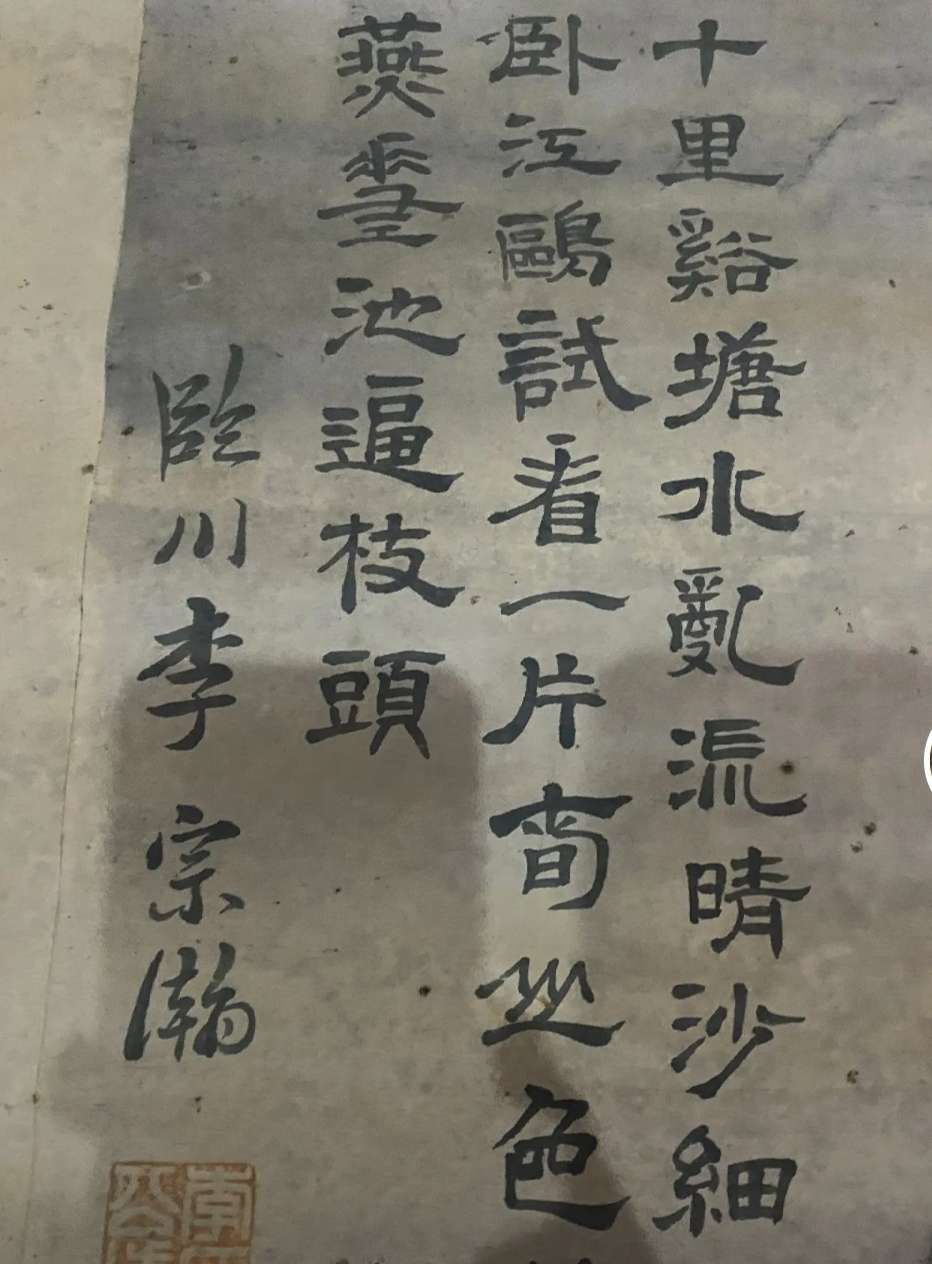 十里谿塘水亂流晴沙細
卧江鷗試看一片色
燕差池逼枝頭
臨川李宗瀚